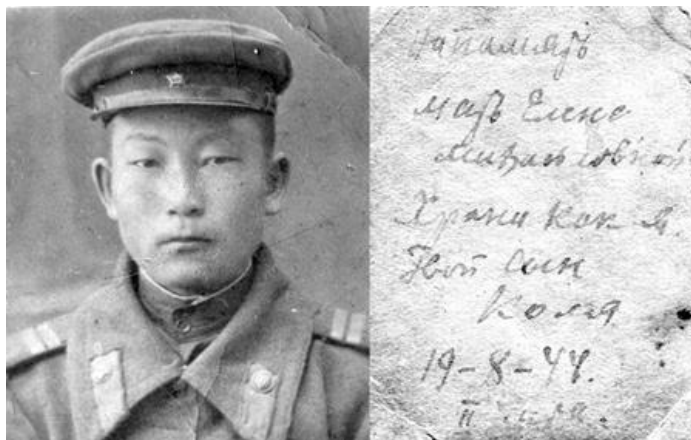 На память
мать Елене
Михайловной
Храни как я.
Твой сын
Коля
19-8-44.